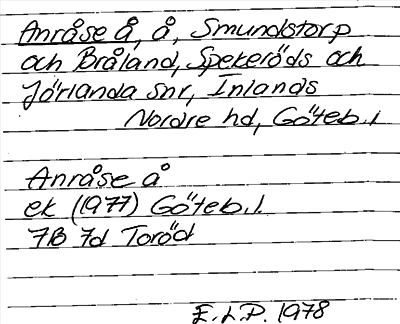 Anråse å, å, Smundstorp
och Bråland, Spekeröds och
Jörlanda snr, Inlands
Nordre hd, Göteb. l
Anråse å
ek (1977) Göteb. l.
7B 7d Toröd
E.L.P. 1978